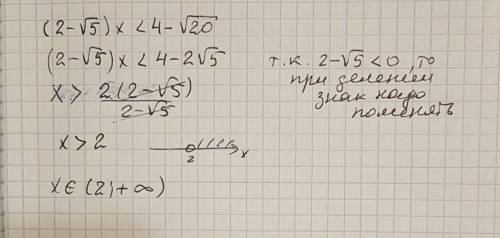 (2-√5)x < 4-√20
(2-√5)x < 4-2√5
x > 2(2-√5)/2-√5
т.к. 2-√5<0, то
при делении
знак надо
поменять
x > 2
2 x
x ∈ (2;+∞)